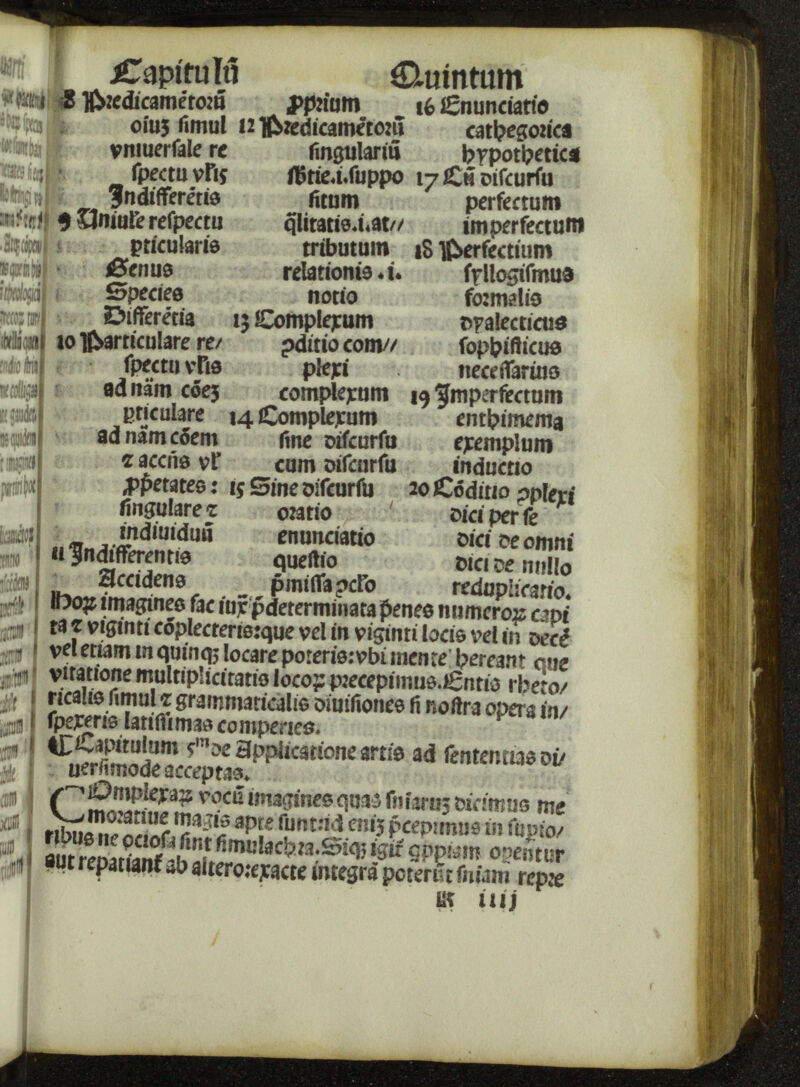 Capitulũ Quintum
8 Predicamẽtoꝝ
oiuȝ ſimul
vniuerſale re
ſpectu vl'is
Indifferẽtis
9 Uniul'e reſpectu
pticularis
Genus
Species
Differẽtia
10 Particulare re/
ſpectu vl'is
ad nãm cõeȝ
pticulare
ad nãm cõem
⁊ accñs vl'
ꝓp̃etates:
ſingulare ⁊
indiuiduũ
11 Indifferentis
Accidens
ꝓprium
12 Predicamẽtoꝝ
ſingulariũ
Btie.i.ſuppo
ſitum
q̃litatis.i.at//
tributum
relationis.i.
notio
13 Complexum
ꝯditio com//
plexi
complexum
14 Complexum
ſine diſcurſu
cum diſcurſu
15 Sine diſcurſu
oratio
enunciatio
queſtio
p̃miſſa ꝯcl'o
16 Enunciatio
cathegorica
hypothetica
17 Cũ diſcurſu
perfectum
imperfectum
18 Perfectium
ſyllogiſmus
formalis
dyalecticus
ſophiſticus
neceſſarius
19 Imperfectum
enthimema
exemplum
inductio
20 Cõditio ꝯplexi
dici per ſe
dici de omni
dici de nullo
reduplicatio.
Hoꝝ imagines fac iux̃ p̃determinata penes numeroꝝ capi
ta ⁊ viginti cõplecteris:que vel in viginti locis vel in decẽ
vel etiam in quinqꝫ locare poteris:vbi mente hereant que
vitatione multiplicitatis locoꝝ precepimus.Entis rheto/
ricalis ſimul ⁊ grammaticalis diuiſiones ſi noſtra opera in/
ſpexeris latiſſimas comperies.
¶ Capitulum ꝟᵐ de Applicatione artis ad ſententias di/
uerſimode acceptas.
COmplexaꝝ vocũ imagines quas ſniarũȝ dicimus me
moratiue magis apte ſunt:id eniȝ p̃cepimus in ſupio/
ribus ne ꝯcioſa ſint ſimulachra.Siqȝ igit̃ qppiam opentur
aut repatiant ab altero:exacte integrã poterũt ſniam repre
K iiij